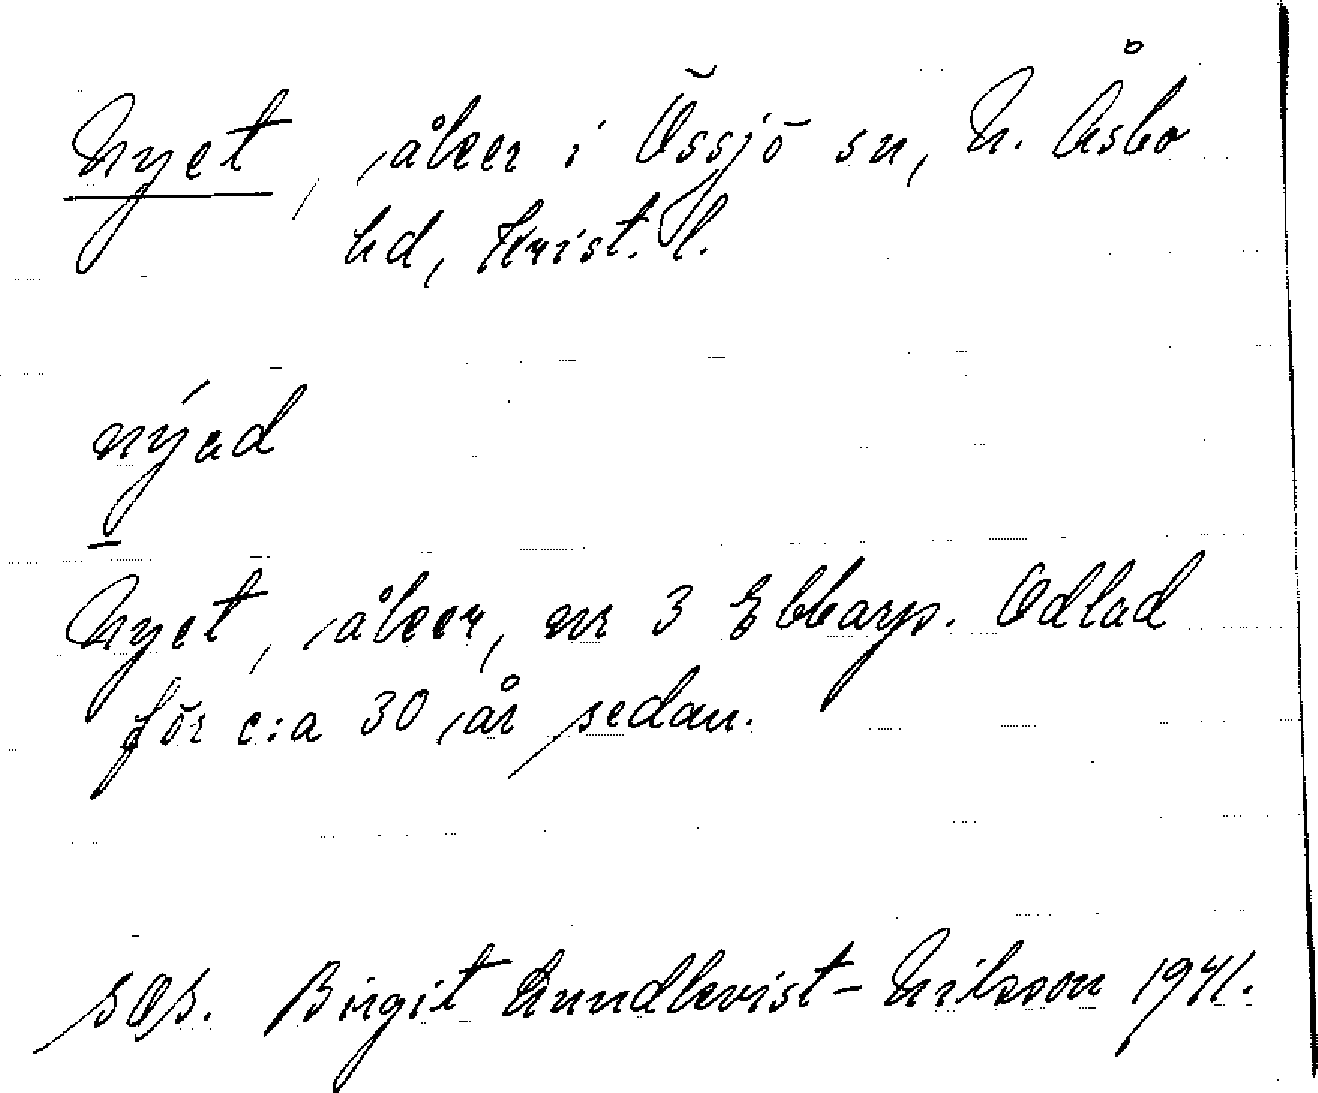 Nyet, åker i Össjö sn, N. Åsbo
hd, Krist. l.
nýad
Nyet, åker, nr 3 Ebbarp. Odlad
för c:a 30 år sedan.
Birgit Lundkvist-Nilsson 1941.